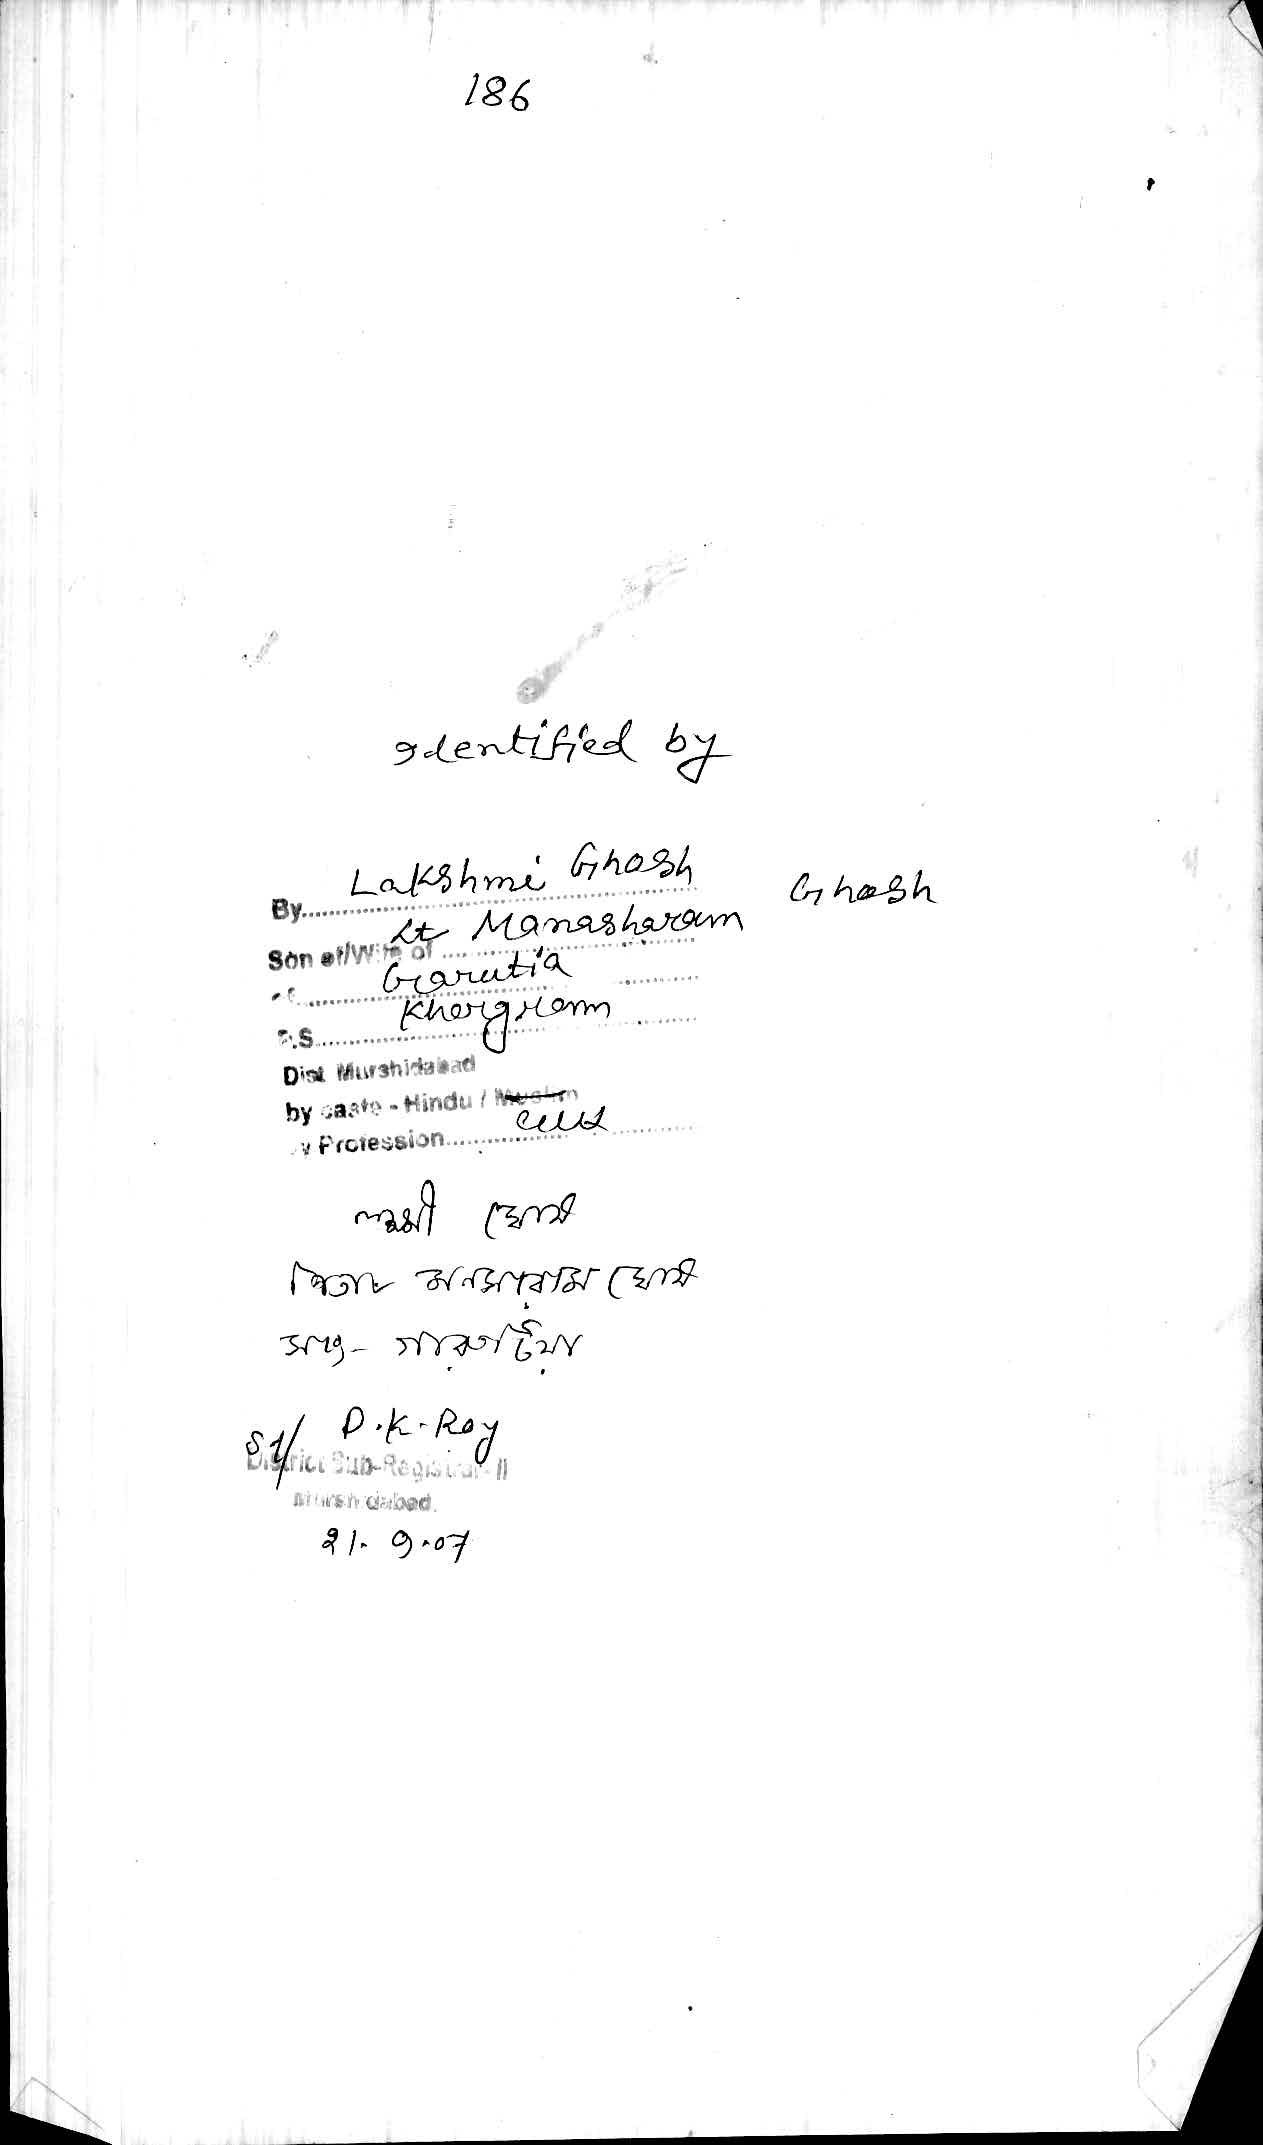 186
Identified by
By........ Lakshmi Ghosh
Son of/Wife of ........ Lt Manasharam Ghosh
of........ Garutia
P.S........ Khargram
Dist Murshidabad
by caste - Hindu / Muslim
by Profession........
লক্ষ্মী ঘোষ
পিতাং মনসারাম ঘোষ
সাং- গারুটিয়া
Sd/ D.K. Roy
District Sub-Registrar-II
Murshidabad.
21. 9.07